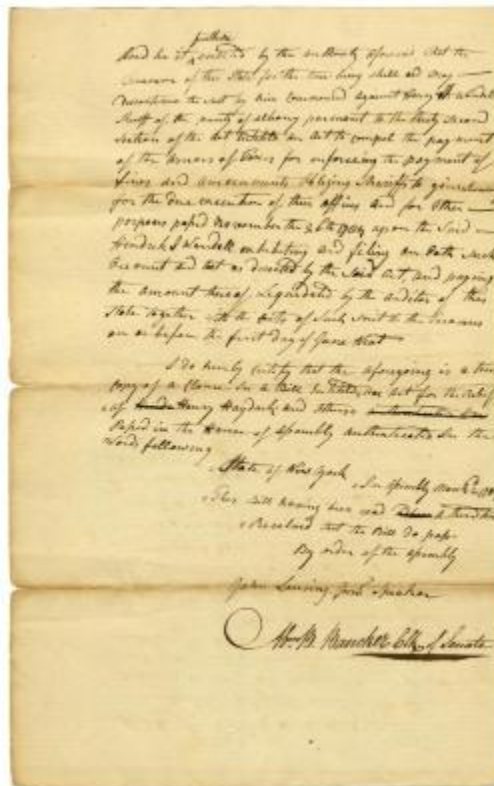 further
And be it enacted by the authority aforesaid that the
of this State for the time being shall and may
the suit by him commenced against Henry Wendell
Sheriff of the county of albany pursuant to the thirty second
Section of the Act entitled an Act to compel the payment
of the Arrears of for enforcing the payment of
fines and amercements obliging Sheriffs to give
for the due execution of their offices and for other
purposes passed November the 26th upon the said
Wendell exhibiting and filing on Oath such
Account and as directed by the said Act and paying
the amount thereof Liquidated by the auditor of this
State together with the costs of such suit to the Treasurer
on or before the first day of June next
I do hereby certify that the aforegoing is a true
Copy of a Clause in a Bill Entitled an Act for the relief
of Henry and others
Passed in the House of Assembly Authenticated in the
Words following
State of New York
In Assembly
This Bill having been read a third
Resolved that the Bill do pass
By order of the assembly
John Lansing Junr Speaker
Abm B. Bancker Clk of Senate